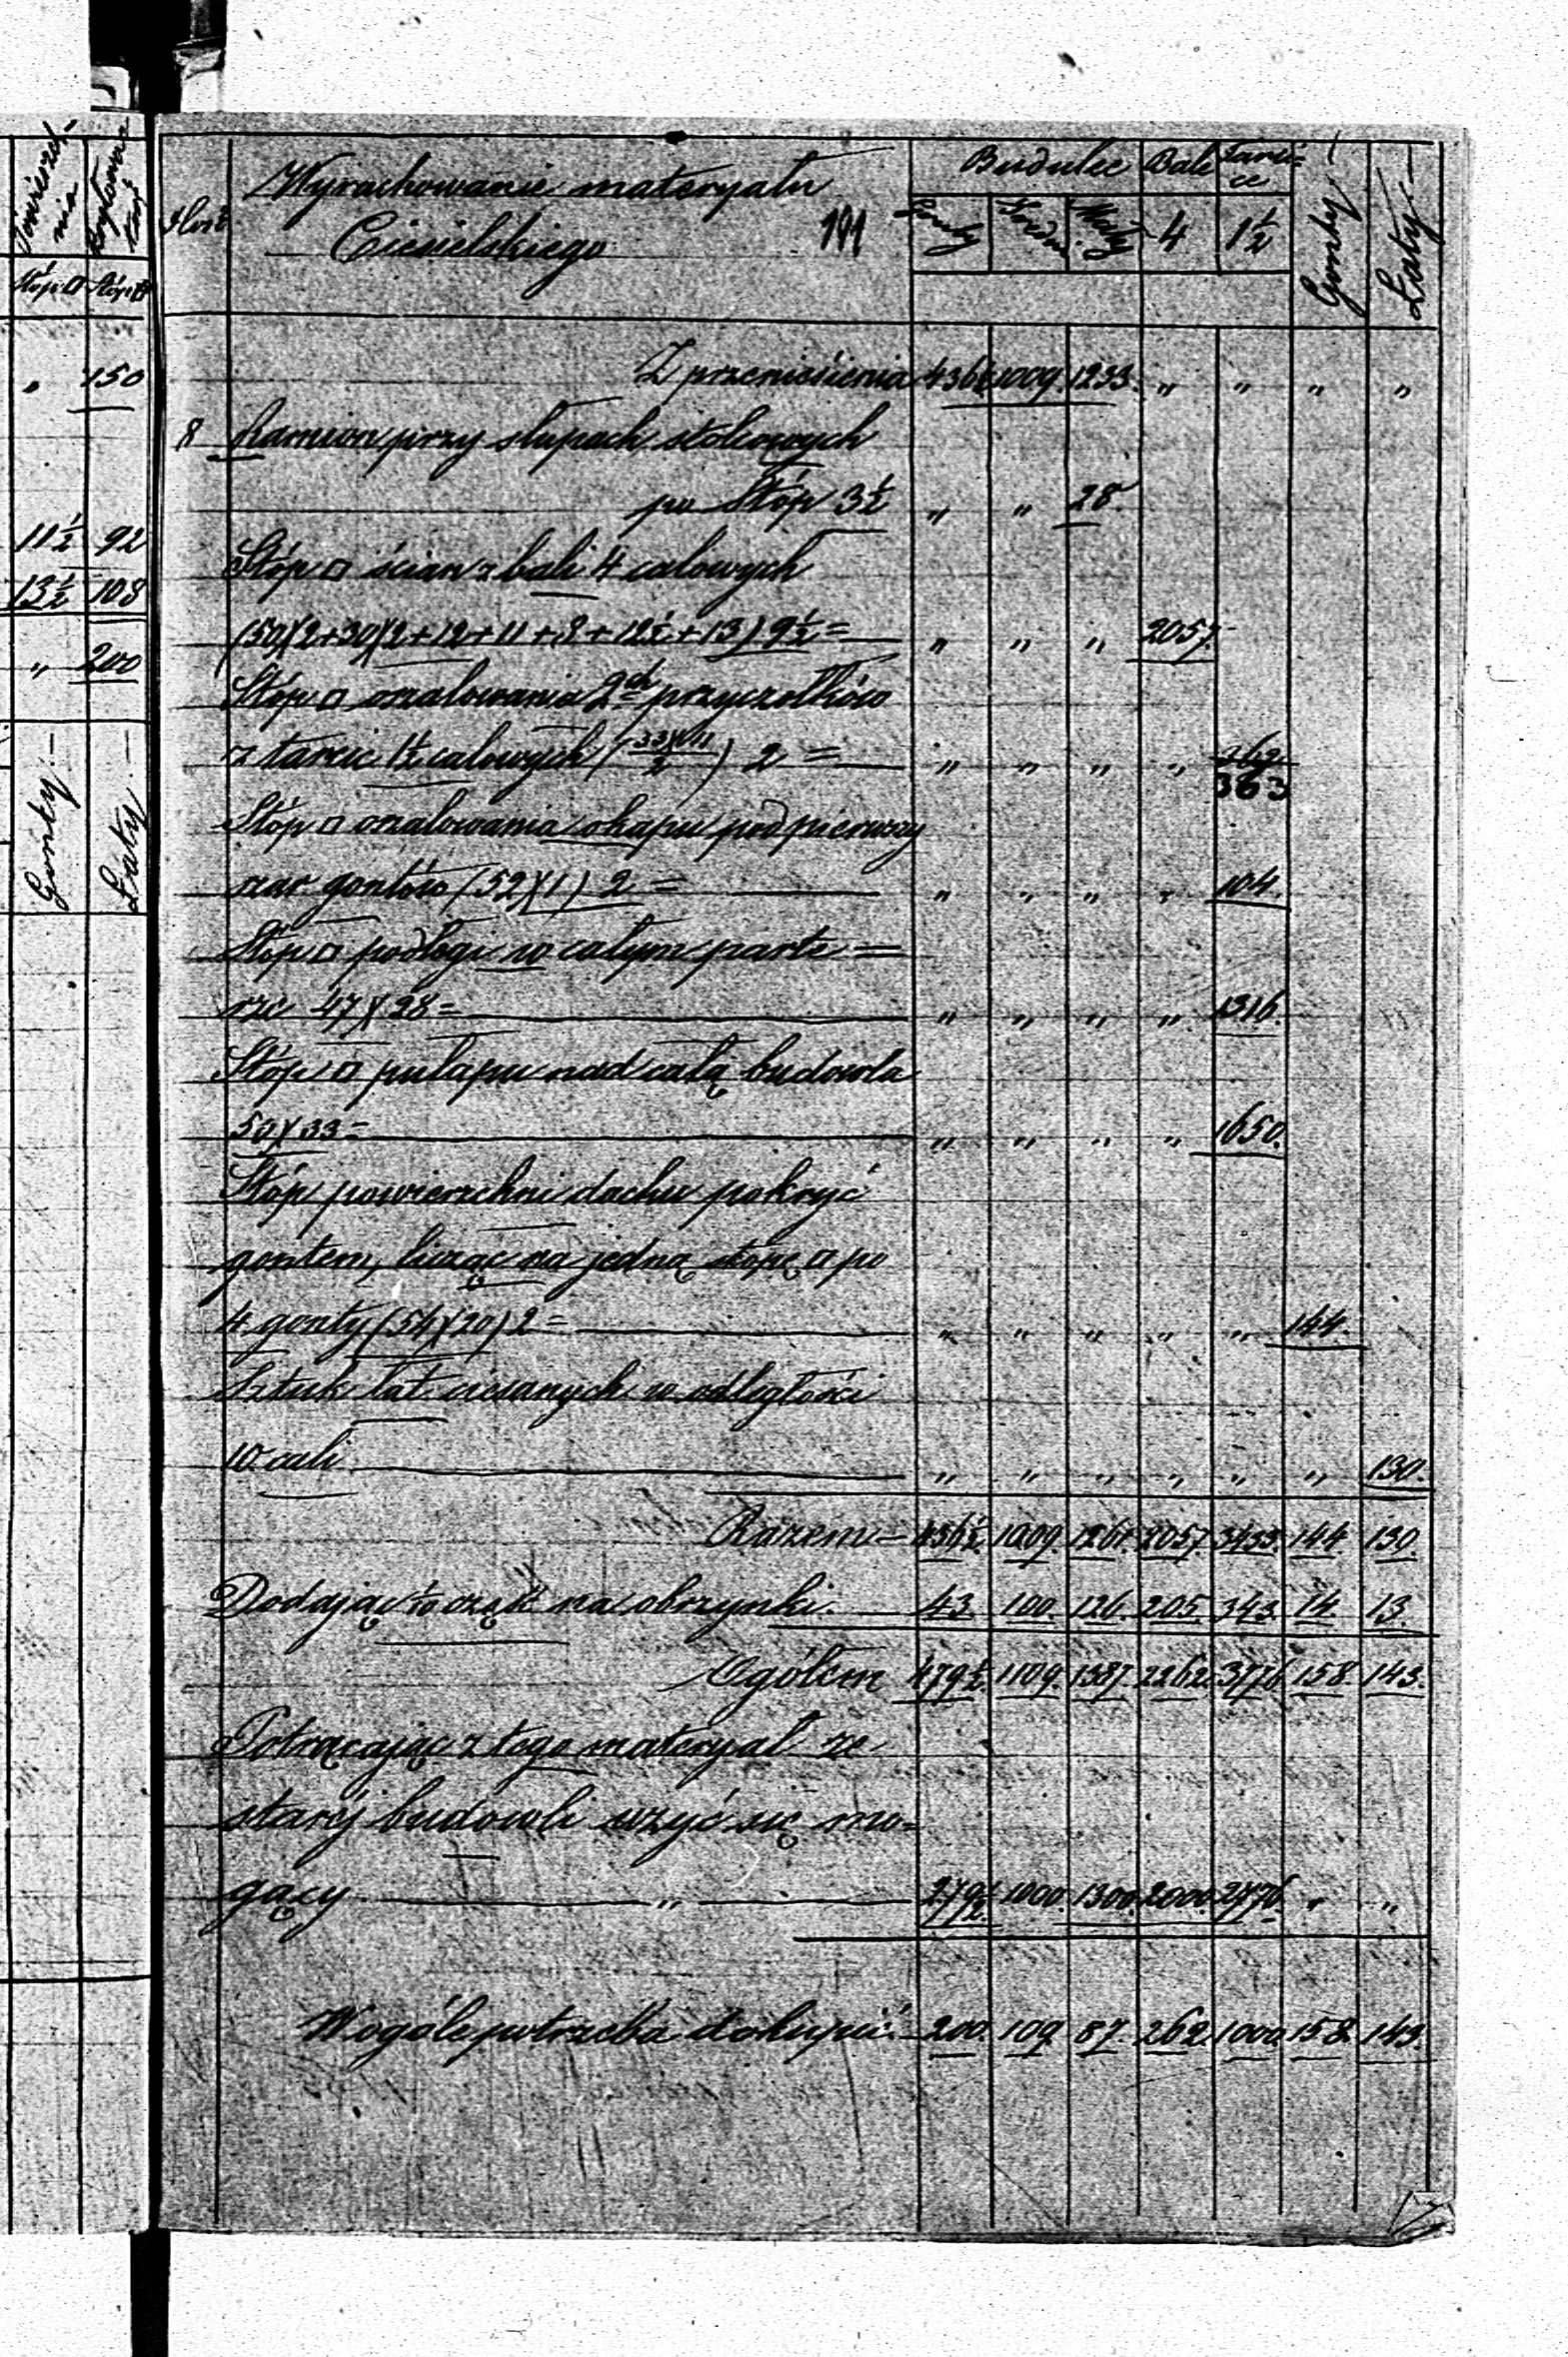 Stóp □ Stóp □
„ 150
11½ 92
13½ 108
„ 200
Gonty.—
Łaty.—
Ilość
Wyrachowanie materyału
Ciesielskiego
191
Budulec Bale Tarci=
ce
4 1½
Gonty.—
Łaty.—
Z przeniesienia 436½ 1009. 1233. „ „ „ „
8 Ramion przy słupach stolcowych
po Stóp 3½ „ „ 28.
Stóp □ ścian z bali 4 calowych
(50)(2+30)(2+12+11+8+12½+13) 9½= „ „ „ 2057.
Stóp □ oszalowania 2ch przyczołków
z tarcic 1½ calowych (33)(11/2) 2 = „ „ „ „ 363
Stóp □ oszalowania okapu pod pierwszy
szar gontów (52)(1) 2 = „ „ „ „ 104.
Stóp □ podłogi w całym parte=
rze 47)(28= „ „ „ „ 1316.
Stóp □ pułapu nad całą budowlą
50)(33= „ „ „ „ 1650.
Stóp powierzchni dachu pokryć
gontem, licząc na jedną stopę □ po
4 gonty (54)(20) 2= „ „ „ „ „ 144.
Sztuk łat ciesanych w odległości
10 cali „ „ „ „ „ „ 130.
Razem= 436½. 1009. 1261. 2057. 3433. 144 130.
Dodając 1/10 część na obrzynki. 43. 100. 126. 205. 343. 14. 13.
Ogółem 479½. 1109. 1387. 2262. 3776. 158. 143.
Potrącając z tego materyał ze
starej budowli użyć się mo=
gący „ 279½. 1000. 1300. 2000. 2776. „ „
Wogóle potrzeba dokupić.— 200. 109. 87. 262. 1000. 158. 143.